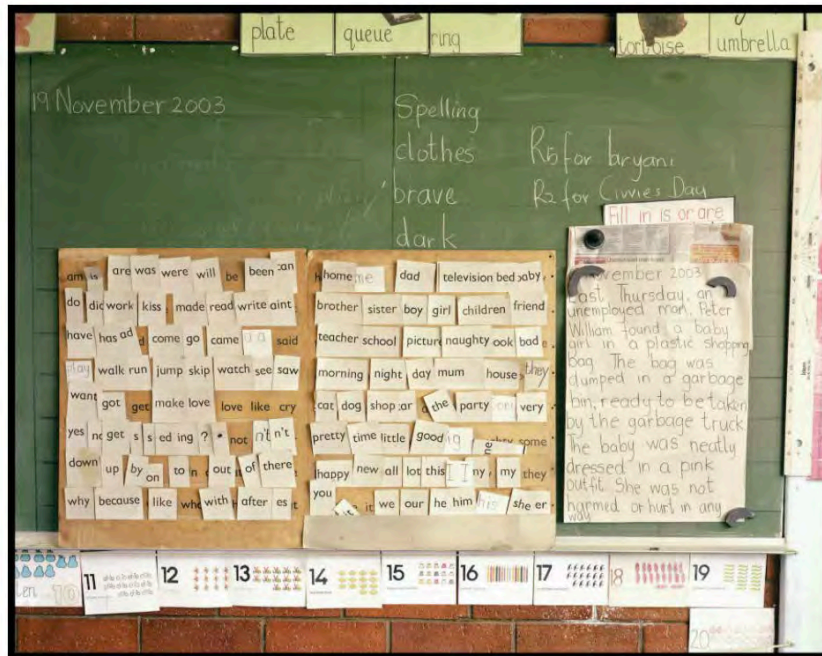 plate queue ring tortoise umbrella
19 November 2003
Spelling
clothes
brave
dark
R5 for bryani
R2 for Civvies Day
Fill in is or are
am is are was were will be been can
do did work kiss made read write aint
have has ad d come go came said
play walk run jump skip watch see saw
want got get make love love like cry
yes get s s ed ing ? not n't n't
down up by on to n out of there
why because like with after es t
home me dad television bed baby
brother sister boy girl children friend
teacher school picture naughty ook bad e
morning night day mum house s they
cat dog shop car the party very
pretty time little good ig some
happy new all lot this I I ny my they
you it we our he him his she er
November 2003
Last Thursday, an
unemployed man, Peter
William found a baby
girl in a plastic shopping
bag. The bag was
dumped in a garbage
bin, ready to be taken
by the garbage truck.
The baby was neatly
dressed in a pink
outfit. She was not
harmed or hurt in any
way
10 11 12 13 14 15 16 17 18 19
20